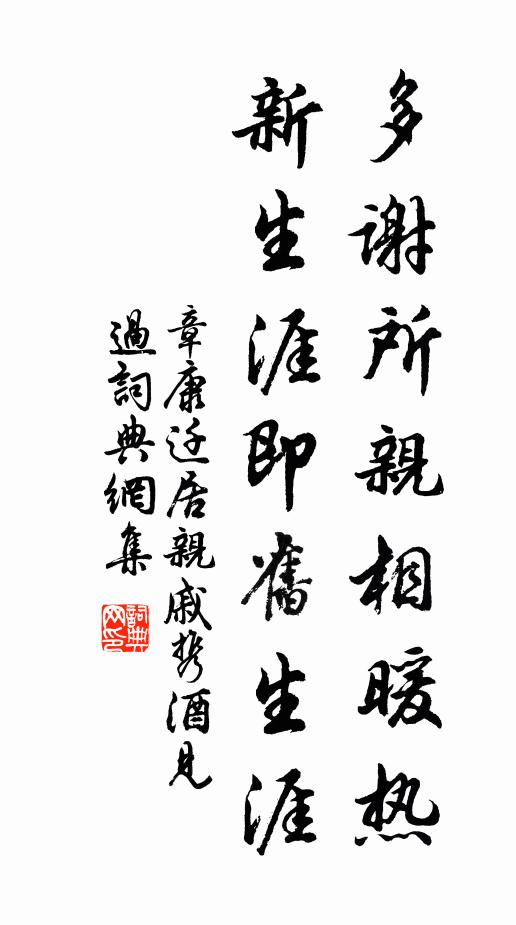 多谢所親相暖热
新生涯即舊生涯
章康迁居親戚携酒見
過詞典網集
詞典网印